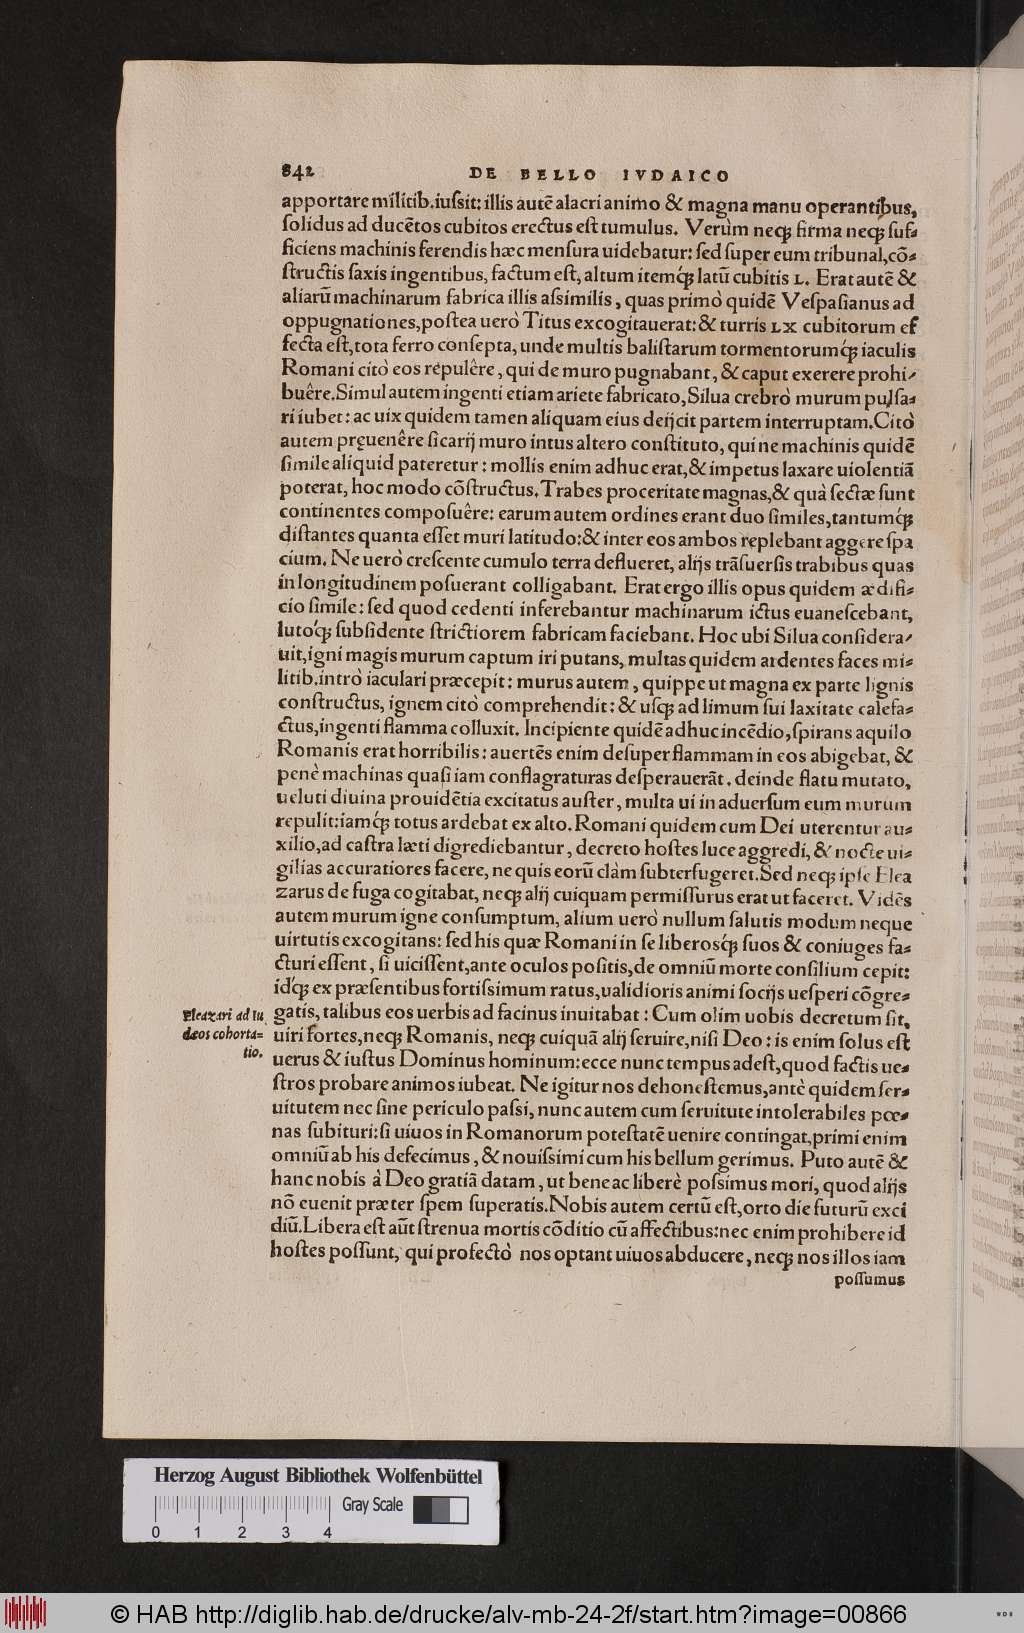 842 DE BELLO IVDAICO
apportare militib.iuſsit: illis autē alacri animo & magna manu operantibus,
ſolidus ad ducētos cubitos erectus eſt tumulus. Verùm neqꝫ firma neqꝫ ſuf-
ficiens machinis ferendis hæc menſura uidebatur: ſed ſuper eum tribunal,cō-
ſtructis ſaxis ingentibus, factum eſt, altum itemq́ꝫ latū cubitis L. Erat autē &
aliarū machinarum fabrica illis aſsimilis, quas primò quidē Veſpaſianus ad
oppugnationes,poſtea uerò Titus excogitauerat: & turris LX cubitorum ef
fecta eſt,tota ferro conſepta, unde multis baliſtarum tormentorumq́ꝫ iaculis
Romani citò eos repulêre, qui de muro pugnabant, & caput exerere prohi-
buêre.Simul autem ingenti etiam ariete fabricato,Silua crebrò murum pulſa-
ri iubet: ac uix quidem tamen aliquam eius deijcit partem interruptam.Citò
autem pręuenêre ſicarij muro intus altero conſtituto, qui ne machinis quidē
ſimile aliquid pateretur: mollis enim adhuc erat,& impetus laxare uiolentiā
poterat, hoc modo cōſtructus. Trabes proceritate magnas,& quà ſectæ ſunt
continentes compoſuêre: earum autem ordines erant duo ſimiles,tantumq́ꝫ
diſtantes quanta eſſet muri latitudo:& inter eos ambos replebant aggere ſpa
cium. Ne uerò creſcente cumulo terra deflueret, alijs trāſuerſis trabibus quas
in longitudinem poſuerant colligabant. Erat ergo illis opus quidem ædifi-
cio ſimile: ſed quod cedenti inferebantur machinarum ictus euaneſcebant,
lutoq́ꝫ ſubſidente ſtrictiorem fabricam faciebant. Hoc ubi Silua conſidera-
uit,igni magis murum captum iri putans, multas quidem ardentes faces mi-
litib.intrò iaculari præcepit: murus autem, quippe ut magna ex parte lignis
conſtructus, ignem citò comprehendit: & uſqꝫ ad limum ſui laxitate calefa-
ctus,ingenti flamma colluxit. Incipiente quidē adhuc incēdio,ſpirans aquilo
Romanis erat horribilis: auertēs enim deſuper flammam in eos abigebat, &
penè machinas quaſi iam conflagraturas deſperauerāt. deinde flatu mutato,
ueluti diuina prouidētia excitatus auſter, multa ui in aduerſum eum murum
repulit:iamq́ꝫ totus ardebat ex alto. Romani quidem cum Dei uterentur au-
xilio,ad caſtra læti digrediebantur, decreto hoſtes luce aggredi, & nocte ui-
gilias accuratiores facere, ne quis eorū clàm ſubterfugeret.Sed neqꝫ ipſe Elea
zarus de fuga cogitabat, neqꝫ alij cuiquam permiſſurus erat ut faceret. Vidēs
autem murum igne conſumptum, alium uerò nullum ſalutis modum neque
uirtutis excogitans: ſed his quæ Romani in ſe liberosq́ꝫ ſuos & coniuges fa-
cturi eſſent, ſi uiciſſent,ante oculos poſitis,de omniū morte conſilium cepit:
idq́ꝫ ex præſentibus fortiſsimum ratus,ualidioris animi ſocijs ueſperi cōgre-
Eleazari ad Iu
dæos cohorta-
tio.
gatis, talibus eos uerbis ad facinus inuitabat: Cum olim uobis decretum ſit,
uiri fortes,neqꝫ Romanis, neqꝫ cuiquā alij ſeruire,niſi Deo: is enim ſolus eſt
uerus & iuſtus Dominus hominum:ecce nunc tempus adeſt,quod factis ue-
ſtros probare animos iubeat. Ne igitur nos dehoneſtemus,antè quidem ſer-
uitutem nec ſine periculo paſsi, nunc autem cum ſeruitute intolerabiles pœ-
nas ſubituri:ſi uiuos in Romanorum poteſtatē uenire contingat,primi enim
omniū ab his defecimus, & nouiſsimi cum his bellum gerimus. Puto autē &
hanc nobis à Deo gratiā datam, ut bene ac liberè poſsimus mori, quod alijs
nō euenit præter ſpem ſuperatis.Nobis autem certū eſt,orto die futurū exci
diū.Libera eſt aūt ſtrenua mortis cōditio cū affectibus:nec enim prohibere id
hoſtes poſſunt, qui profectò nos optant uiuos abducere, neqꝫ nos illos iam
poſſumus
Herzog August Bibliothek Wolfenbüttel
Gray Scale
0 1 2 3 4
© HAB http://diglib.hab.de/drucke/alv-mb-24-2f/start.htm?image=00866